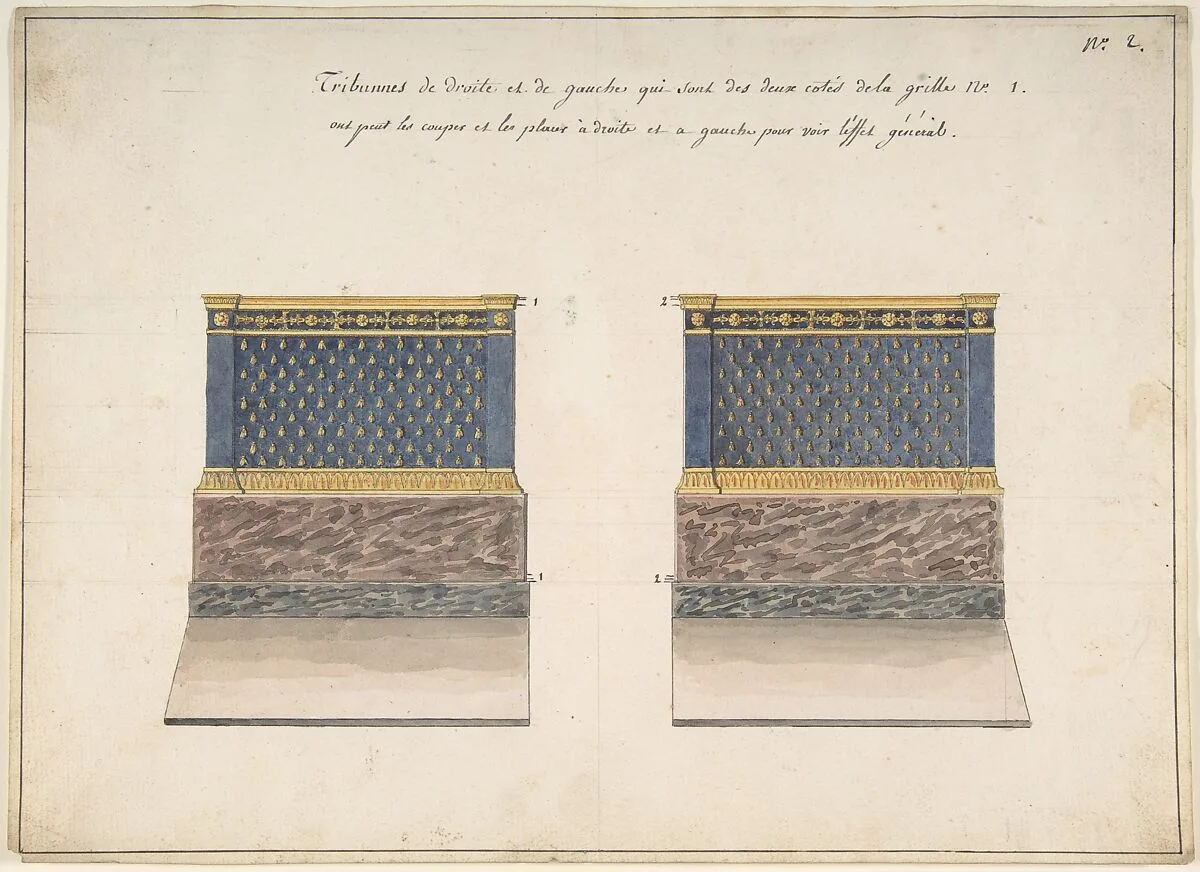 No. 2.
Tribunnes de droite et de gauche qui sont des deux cotés de la grille No. 1.
ont peut les couper et les placer à droite et a gauche pour voir l'éffet général.
1
2
1
2